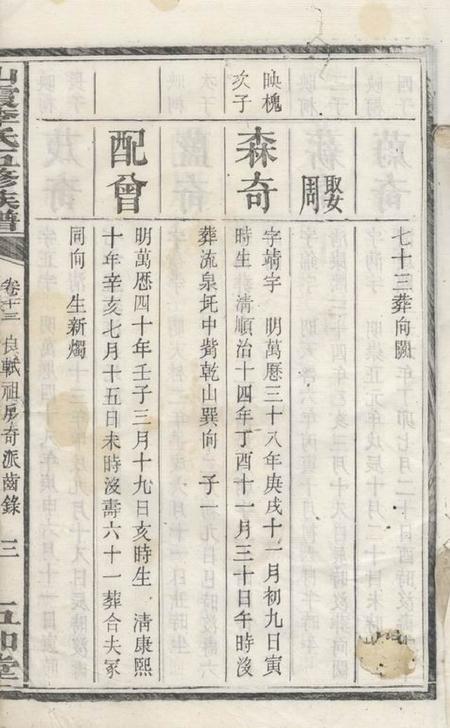 七十三葬向闕
娶周
映槐次子
森奇
字靖宇 明萬厯三十八年庚戌十一月初九日寅
時生 清順治十四年丁酉十一月三十日午時沒
葬流泉坑中嘴乾山巽向 子一
配曾
明萬厯四十年壬子三月十九日亥時生 清康熙
十年辛亥七月十五日未時沒壽六十一葬合夫冢
同向 生新燭
五修族譜
卷十三
良軾祖房奇派齒錄
三
五和堂